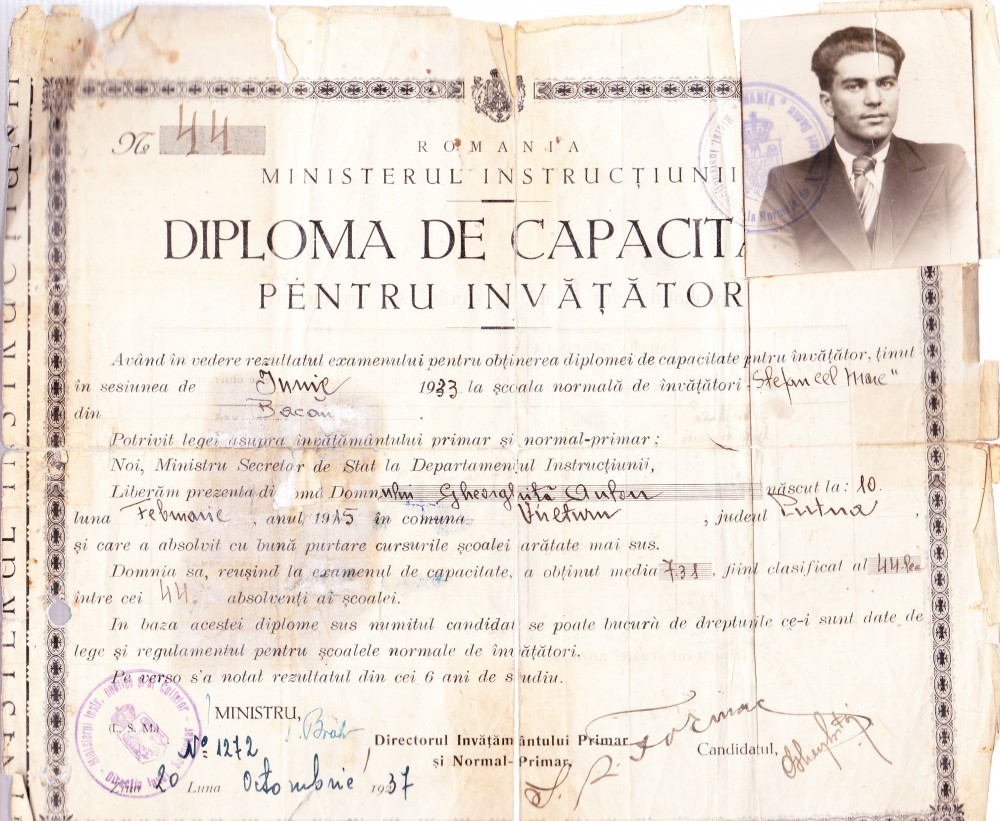 No 44
ROMANIA
MINISTERUL INSTRUCȚIUNII
DIPLOMA DE CAPACIT
PENTRU INVĂȚĂTOR
Având în vedere rezultatul examenului pentru obținerea diplomei de capacitate pntru învățător, ținut
în sesiunea de Iunie 1933 la școala normală de învățători „Stefan cel Mare"
din Bacau.
Potrivit legei asupra învățământului primar și normal-primar;
Noi, Ministru Secretar de Stat la Departamentul Instrucțiunii,
Liberăm prezenta diplomă Domnului Gheorghiță Anton născut la: 10.
luna Februarie, anul 1915 în comuna Vulturu, județul Putna,
și care a absolvit cu bună purtare cursurile școalei arătate mai sus.
Domnia sa, reușind la examenul de capacitate, a obținut media 731, fiint clasificat al 44 lea
între cei 44 absolvenți ai școalei.
In baza acestei diplome sus numitul candidat se poate bucură de drepturile ce-i sunt date de
lege și regulamentul pentru școalele normale de învățători.
Pe verso s'a notat rezultatul din cei 6 ani de studiu.
MINISTRU,
(L. S. M.)
No 1272
Directorul Invățământului Primar
și Normal-Primar,
Candidatul,
Ziua 20 Luna Octombrie 1937
MINISTERUL INSTRUCȚIUNII
ROMANIA